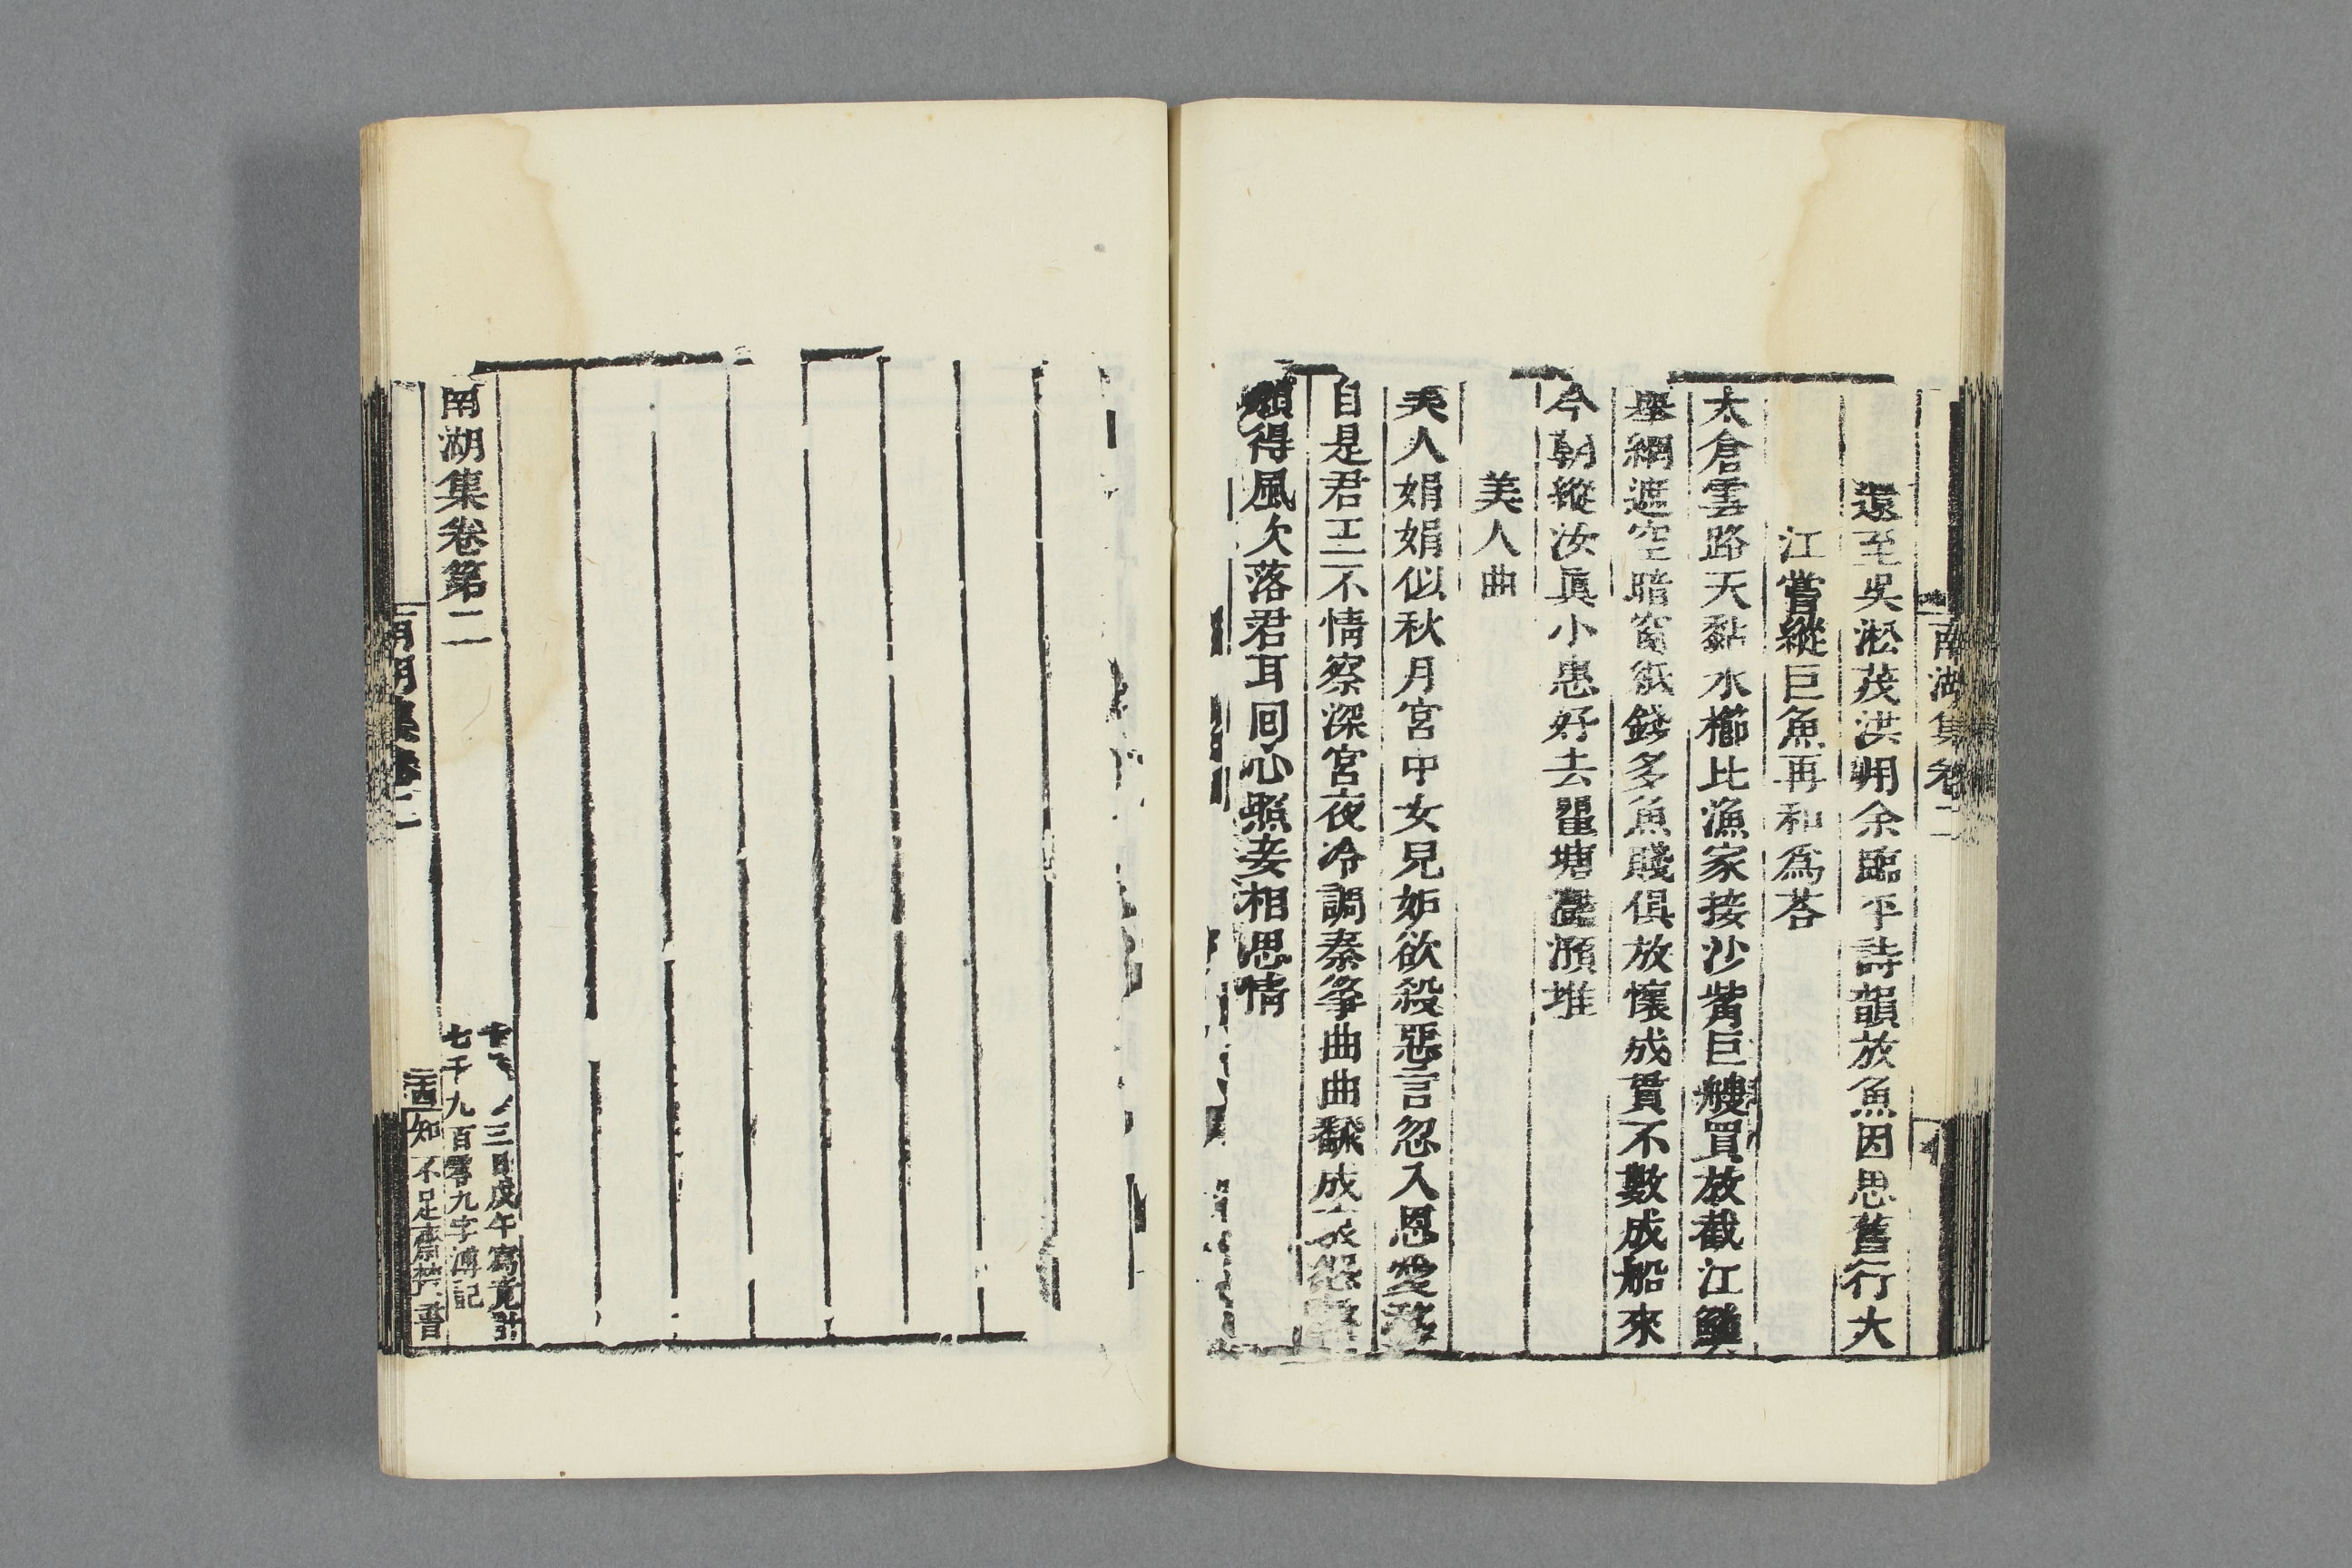 南湖集卷二
還至吳淞茂洪用余臨平詩韻放魚因思舊行大
江嘗縱巨魚再和為荅
太倉雲路天黏水櫛比漁家接沙觜巨艘買放截江鱣
舉網遮空暗窗紙錢多魚賤俱放懷成貫不數成船來
今朝縱汝眞小惠好去瞿塘灩澦堆
美人曲
美人娟娟似秋月宮中女兒妒欲殺惡言忽入恩愛
自是君王不情察深宮夜冷調秦箏曲曲翻成哀怨
願得風吹落君耳回心照妾相思情
南湖集卷第二
三日戊午寫竟計
七千九百零九字溥記
知不足齋叢書
南湖集卷二